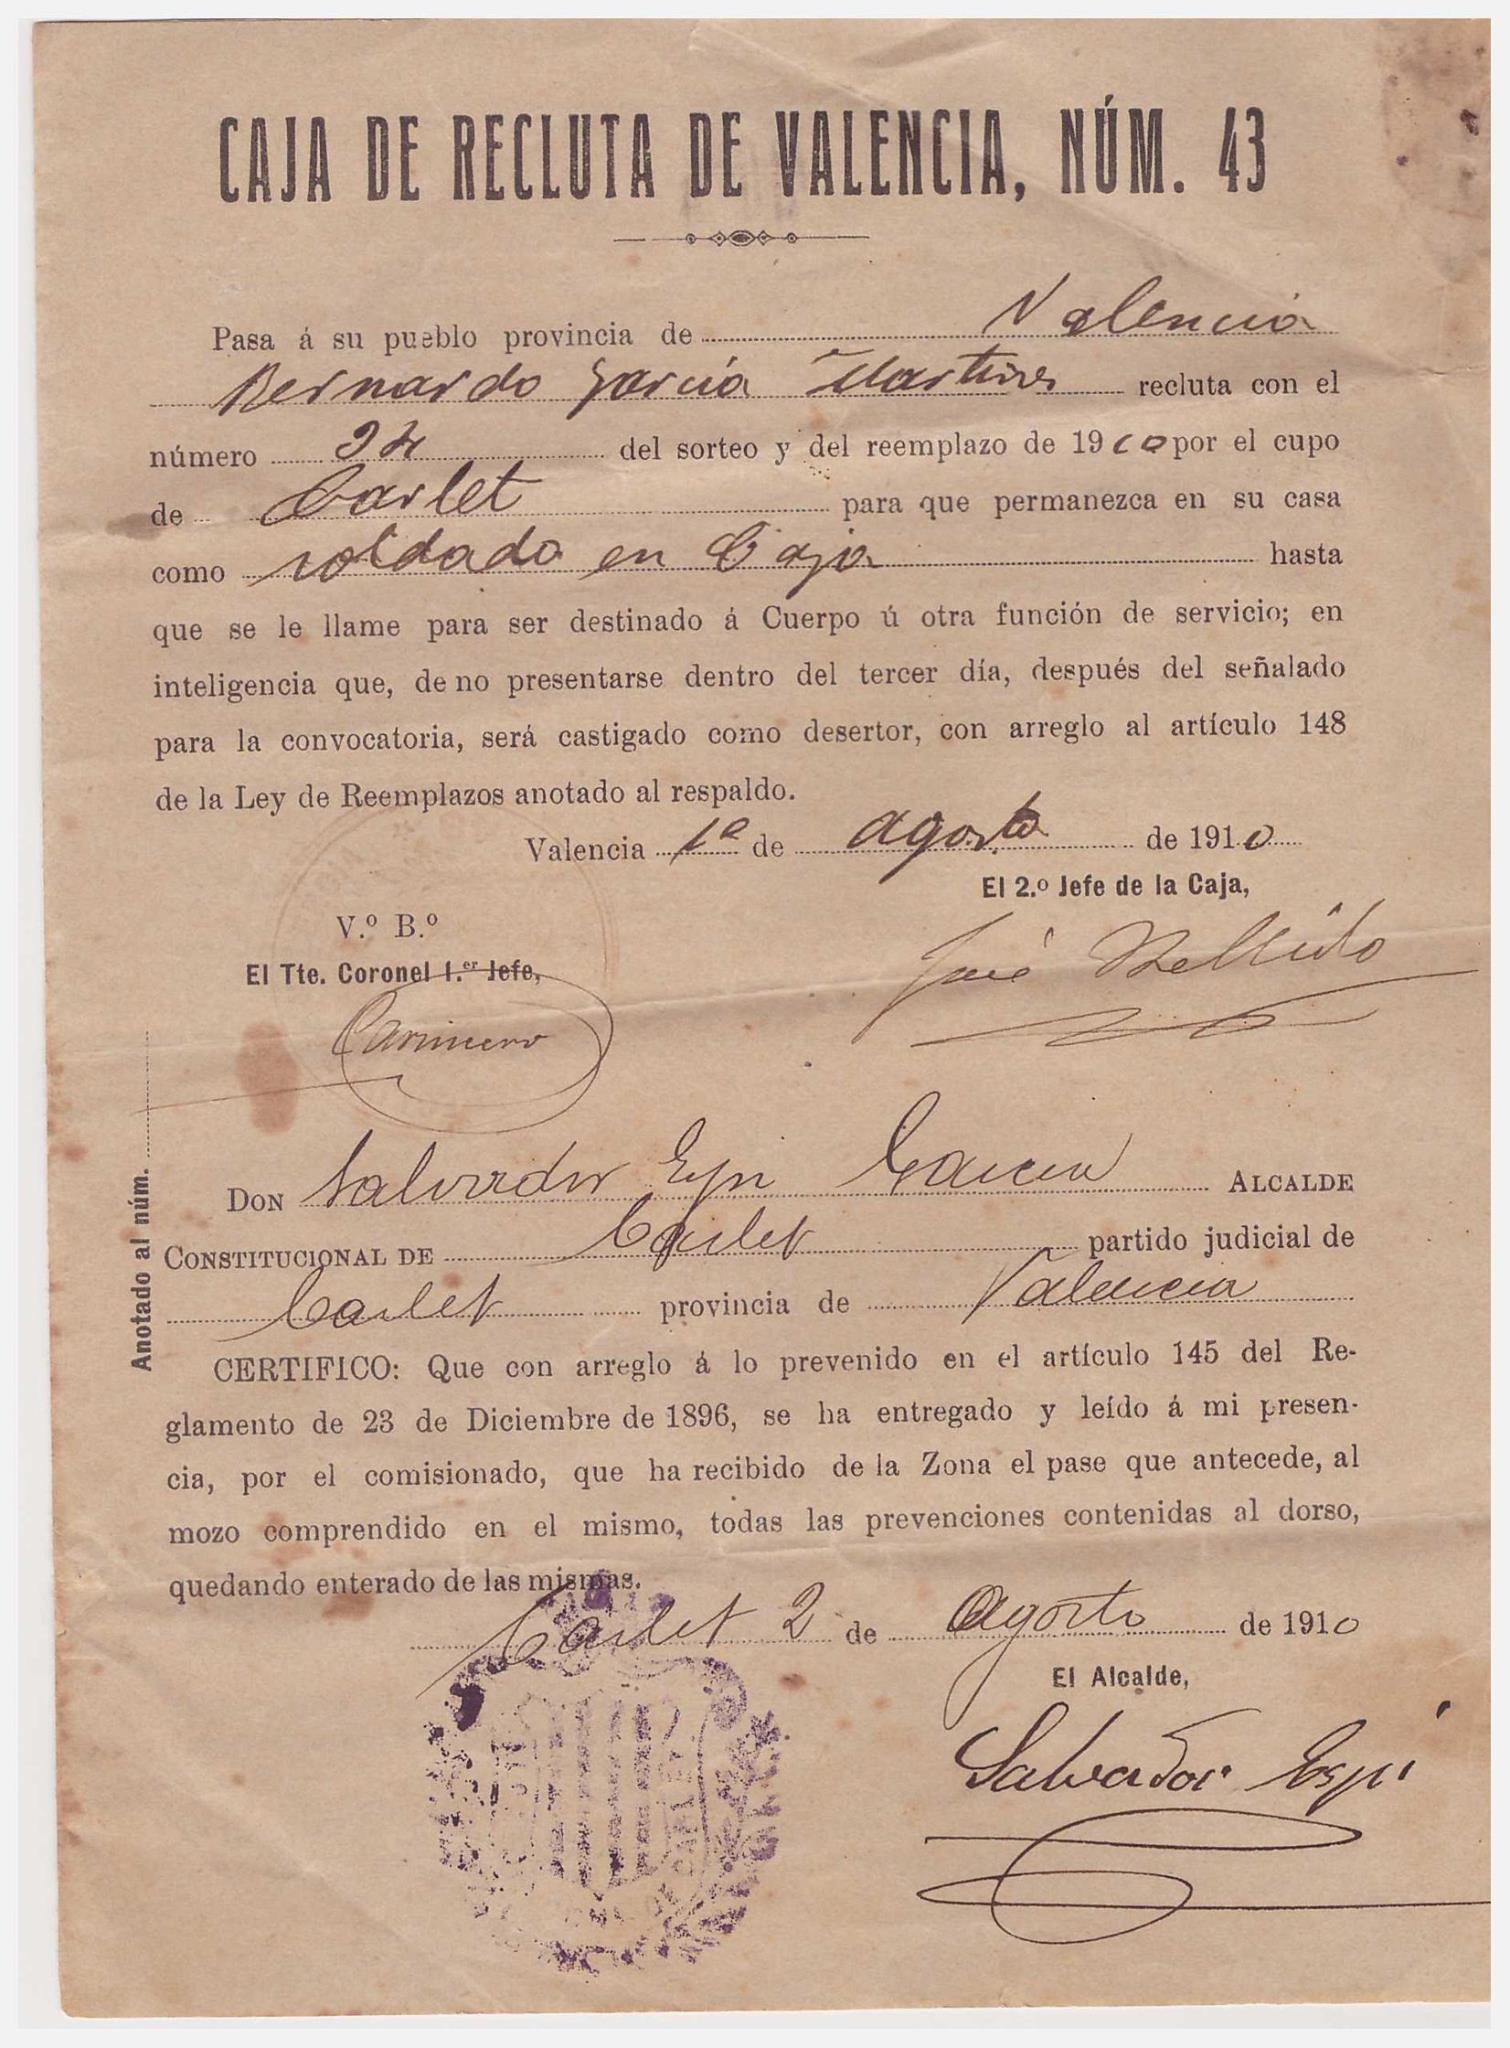 CAJA DE RECLUTA DE VALENCIA, NÚM. 43
Pasa á su pueblo provincia de Valencia
Bernardo García Martinez recluta con el
número 24 del sorteo y del reemplazo de 1910 por el cupo
de Carlet para que permanezca en su casa
como soldado en Caja hasta
que se le llame para ser destinado á Cuerpo ú otra función de servicio; en
inteligencia que, de no presentarse dentro del tercer día, después del señalado
para la convocatoria, será castigado como desertor, con arreglo al artículo 148
de la Ley de Reemplazos anotado al respaldo.
Valencia 1º de agosto de 1910
El 2.º Jefe de la Caja,
José Bellido
V.º B.º
El Tte. Coronel 1.er Jefe,
Anotado al núm.
DON Salvador Espi Garcia ALCALDE
CONSTITUCIONAL DE Carlet partido judicial de
Carlet provincia de Valencia
CERTIFICO: Que con arreglo á lo prevenido en el artículo 145 del Re-
glamento de 23 de Diciembre de 1896, se ha entregado y leído á mi presen-
cia, por el comisionado, que ha recibido de la Zona el pase que antecede, al
mozo comprendido en el mismo, todas las prevenciones contenidas al dorso,
quedando enterado de las mismas.
Carlet 2 de Agosto de 1910
El Alcalde,
Salvador Espi